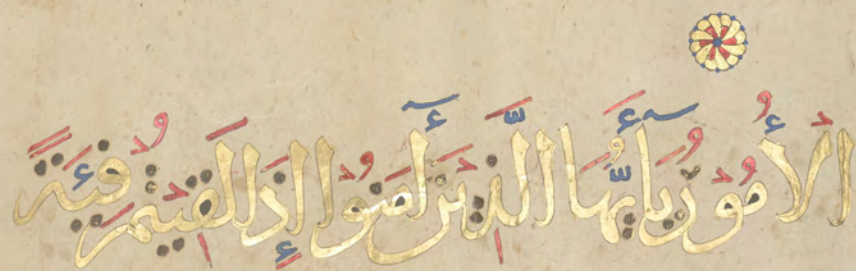 الْأُمُورُ يَٰٓأَيُّهَا الَّذِينَ ءَامَنُوٓا إِذَا لَقِيتُمْ فِئَةً